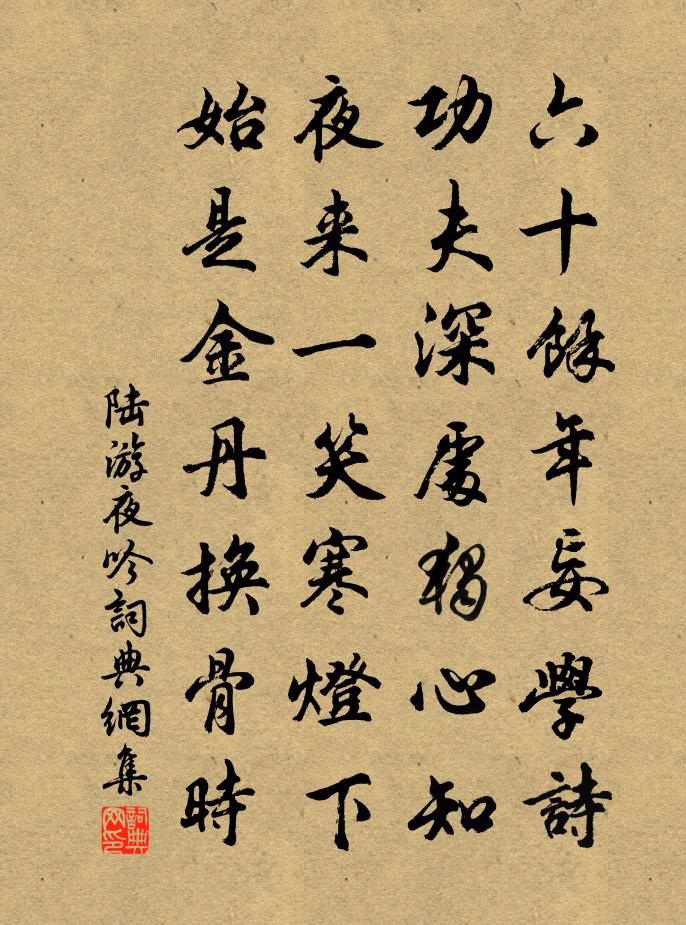 六十餘年妄學詩
功夫深處獨心知
夜来一笑寒燈下
始是金丹換骨時
陆游夜吟詞典網集
詞典網印